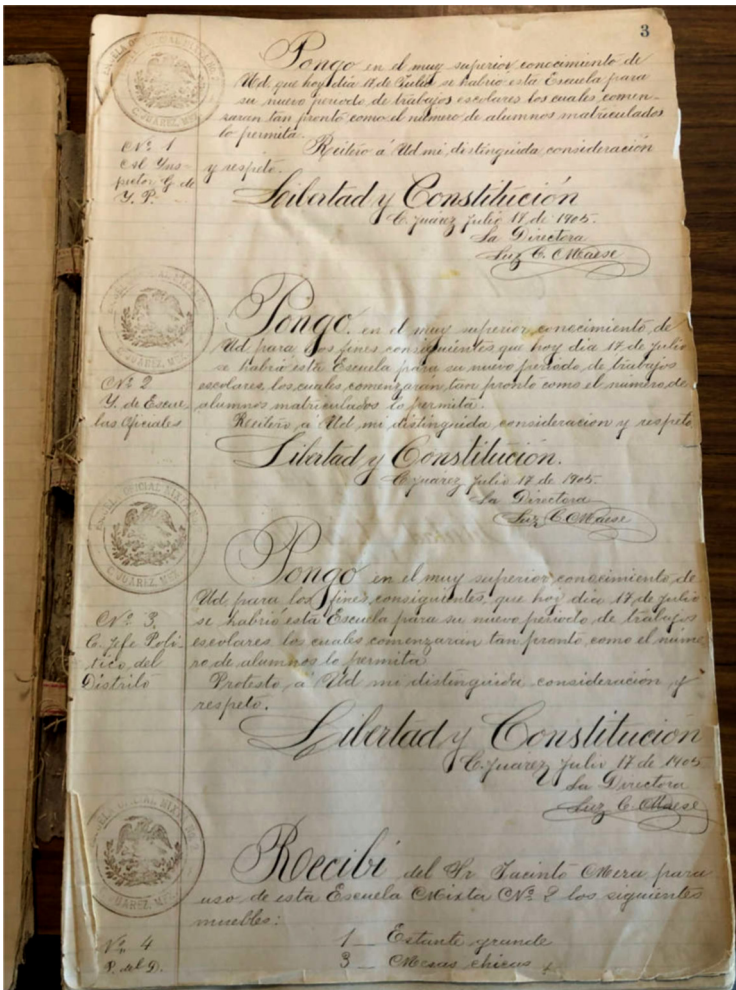 3
Pongo en el muy superior conocimiento de
Ud. que hoy día 17 de Julio se habrió esta Escuela para
su nuevo periodo de trabajos escolares los cuales comen-
zaran tan pronto como el número de alumnos matriculados
lo permita.
Reitero á Ud mi distinguida consideración
y respeto.
Nº 1
Insp
pector G. de
Y. P.
Libertad y Constitución
C. Juárez Julio 17 de 1905.
La Directora
Luz C. Maese
Pongo en el muy superior conocimiento de
Ud para los fines consiguientes que hoy dia 17 de julio
se habrió esta Escuela para su nuevo período de trabajos
escolares, los cuales comenzaran tan pronto como el numero de
alumnos matriculados lo permita.
Reitero a Ud mi distinguida consideracion y respeto
Nº 2
Y. de Escue
las Oficiales
Libertad y Constitución.
C. Juarez Julio 17 de 1905.
La Directora
Luz C. Maese
ESCUELA OFICIAL MIXTA
C. JUÁREZ, MEX.
Pongo en el muy superior conocimiento de
Ud para los fines consiguientes, que hoy dia 17 de julio
se habrió esta Escuela para su nuevo periodo de trabajos
escolares, los cuales comenzaran tan pronto como el núme-
ro de alumnos lo permita
Protesto á Ud mi distinguida consideración y
respeto.
Nº 3.
C. Jefe Polí
tico del
Distrito
Libertad y Constitución
C. Juarez Julio 17 de 1905
La Directora
Luz C. Maese
Recibí del Sr. Jacinto Mera para
uso de esta Escuela Mixta Nº 2 los siguientes
muebles:
1 — Estante grande
3 — Mesas chicas
Nº 4
P. del D.